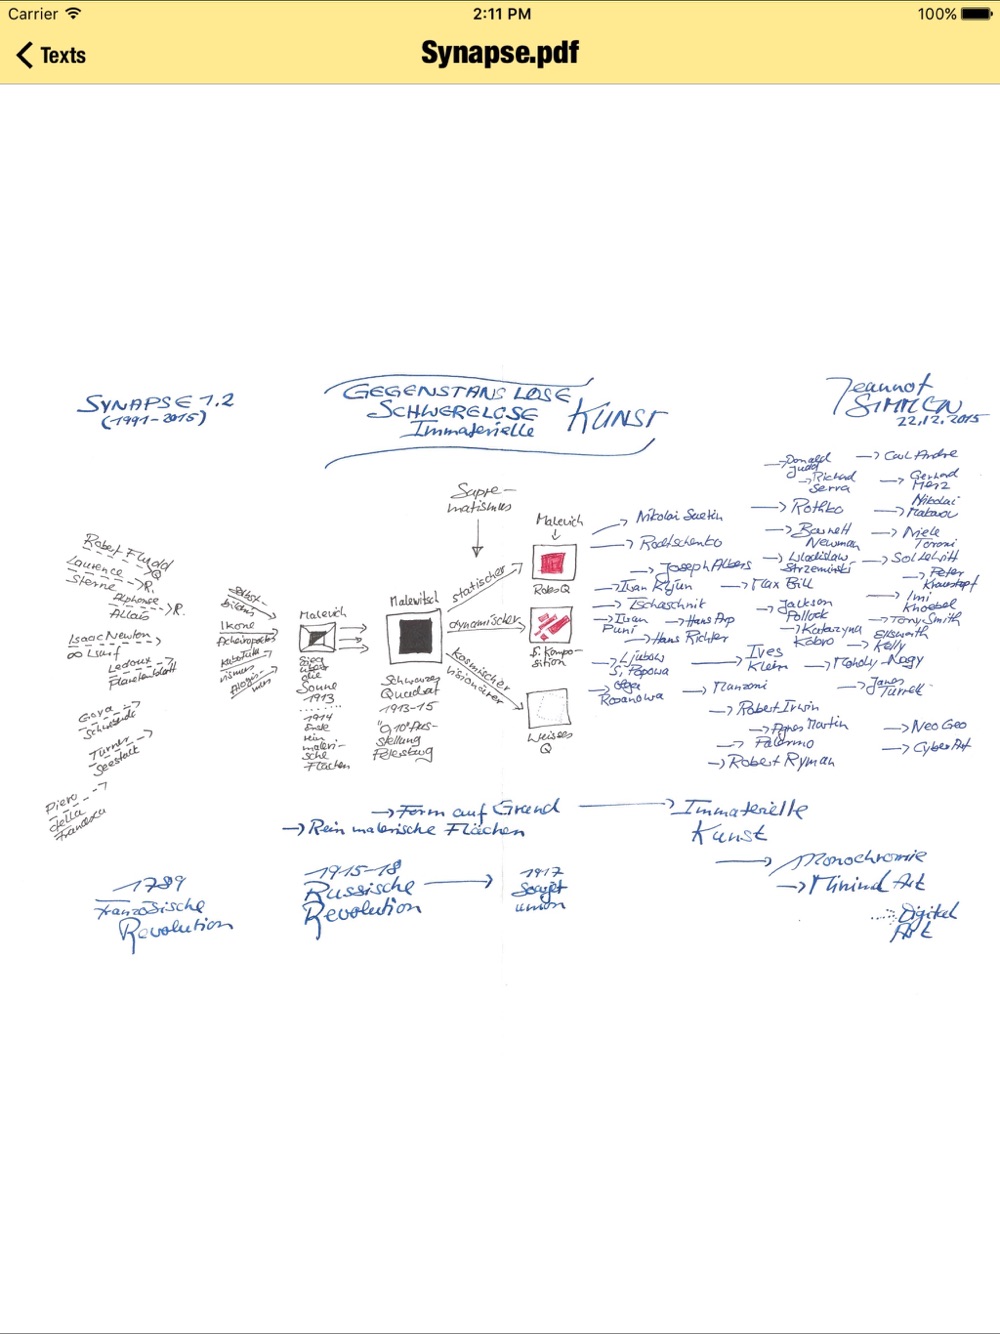 Carrier
2:11 PM
100%
Texts
Synapse.pdf
SYNAPSE 1.2
(1991-2015)
GEGENSTANSLOSE
SCHWERELOSE
Immaterielle
KUNST
Jeannot
SIMMEN
22.12.2015
Supre-
matismus
Robert Fludd
Q
Laurence
Sterne
R.
Alphonse
Allais
R.
Isaac Newton
Ledoux
Planetenblatt
Goya
Turner
Seestück
Piero
della
Francesca
Selbst-
bildnis
Ikone
Acheiropoeta
Kubofutu-
rismus
Alogis-
mus
Malevich
Sieg
über
die
Sonne
1913
1914
Erste
rein
maleri-
sche
Flächen
Malewitsch
Schwarzes
Quadrat
1913-15
"0,10" Aus-
stellung
Petersburg
statischer
dynamischer
kosmischer
visionärer
Malevich
Rotes Q
S. Kompo-
sition
Weisses
Q
Nikolai Suetin
Rodtschenko
Joseph Albers
Ivan Kljun
Tschaschnik
Ivan
Puni
Hans Arp
Hans Richter
Ljubow
S. Popowa
Olga
Rosanowa
Donald
Judd
Richard
Serra
Rothko
Barnett
Newman
Wladislaw
Strzeminski
Max Bill
Jackson
Pollock
Katarzyna
Kobro
Ives
Klein
Moholy-Nagy
Manzoni
Robert Irwin
Agnes Martin
Palermo
Robert Ryman
Carl Andre
Gerhard
Merz
Nikolai
Makarov
Niele
Toroni
Sol LeWitt
Peter
Imi
Knoebel
Tony Smith
Ellsworth
Kelly
James
Turrell
Neo Geo
Cyber Art
Form auf Grund
Rein malerische Flächen
Immaterielle
Kunst
Monochromie
Minimal Art
Digital
Art
1789
Französische
Revolution
1915-18
Russische
Revolution
1917
Sowjet
union